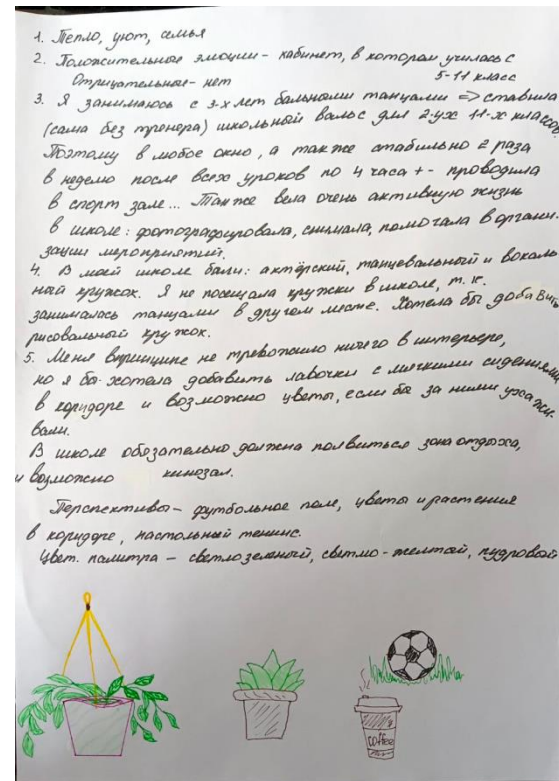 1. Тепло, уют, семья
2. Положительные эмоции - кабинет, в котором училась с
5-11 класс
Отрицательные - нет
3. Я занимаюсь с 3-х лет бальными танцами => ставила
(сама без тренера) школьный вальс для 2-ух 11-х классов.
Поэтому в любое окно, а также стабильно 2 раза
в неделю после всех уроков по 4 часа +- проводила
в спорт зале... Также вела очень активную жизнь
в школе: фотографировала, снимала, помогала в органи-
зации мероприятий.
4. В моей школе были: актёрский, танцевальный и вокаль-
ный кружок. Я не посещала кружки в школе, т.к.
занималась танцами в другом месте. Хотела бы добавить
рисовальный кружок.
5. Меня впринципе не тревожило ничего в интерьере,
но я бы хотела добавить лавочки с мягкими сидениями
в коридоре и возможно цветы, если бы за ними ухажи-
вали.
В школе обязательно должна появиться зона отдыха,
и возможно кинозал.
Перспективы - футбольное поле, цветы и растения
в коридоре, настольный теннис.
Цвет. палитра - светлозеленый, светло-желтый, пудровый
coffee